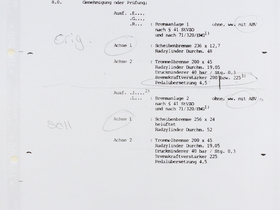 0.0. Genehmigung oder Prüfung:
Ausf. .I....
: Bremsanlage 1 ohne, ww. mit ABV
nach § 41 StVZO
und nach 71/320/EWG
Achse 1 : Scheibenbremse 236 x 12,7
Radzylinder Durchm. 48
Achse 2 : Trommelbremse 200 x 45
Radzylinder Durchm. 19,05
Druckminderer 40 bar / Stg. 0,3
Bremskraftverstärker 200 bzw. 225
Pedalübersetzung 4,5
Ausf.
: Bremsanlage 2 ohne, ww. mit ABV
nach § 41 StVZO
und nach 71/320/EWG
Achse 1 : Scheibenbremse 256 x 24
belüftet
Radzylinder Durchm. 52
Achse 2 : Trommelbremse 200 x 45
Radzylinder Durchm. 19,05
Druckminderer 40 bar / Stg. 0,3
Bremskraftverstärker 225
Pedalübersetzung 4,5